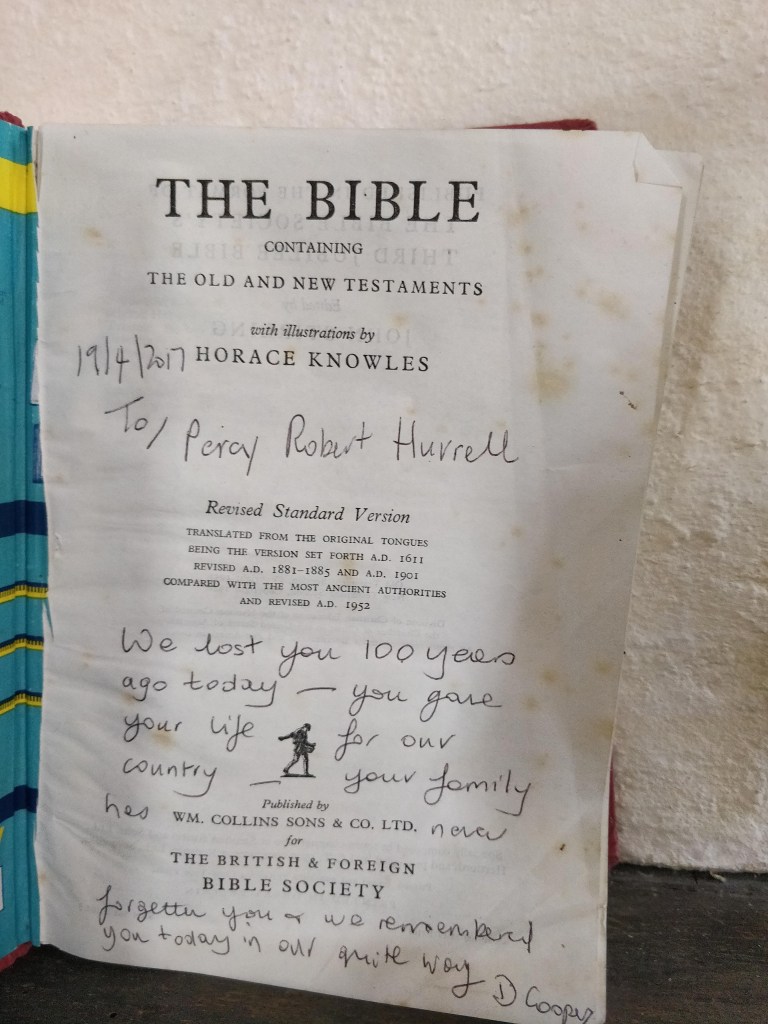 THE BIBLE
CONTAINING
THE OLD AND NEW TESTAMENTS
with illustrations by
19/4/2017 HORACE KNOWLES
To/ Percy Robert Hurrell
Revised Standard Version
TRANSLATED FROM THE ORIGINAL TONGUES
BEING THE VERSION SET FORTH A.D. 1611
REVISED A.D. 1881–1885 AND A.D. 1901
COMPARED WITH THE MOST ANCIENT AUTHORITIES
AND REVISED A.D. 1952
We lost you 100 years
ago today — you gave
your life for our
country — your family
Published by
has WM. COLLINS SONS & CO. LTD. never
for
THE BRITISH & FOREIGN
BIBLE SOCIETY
forgotten you & we remembered
you today in our quite way
D Cooper